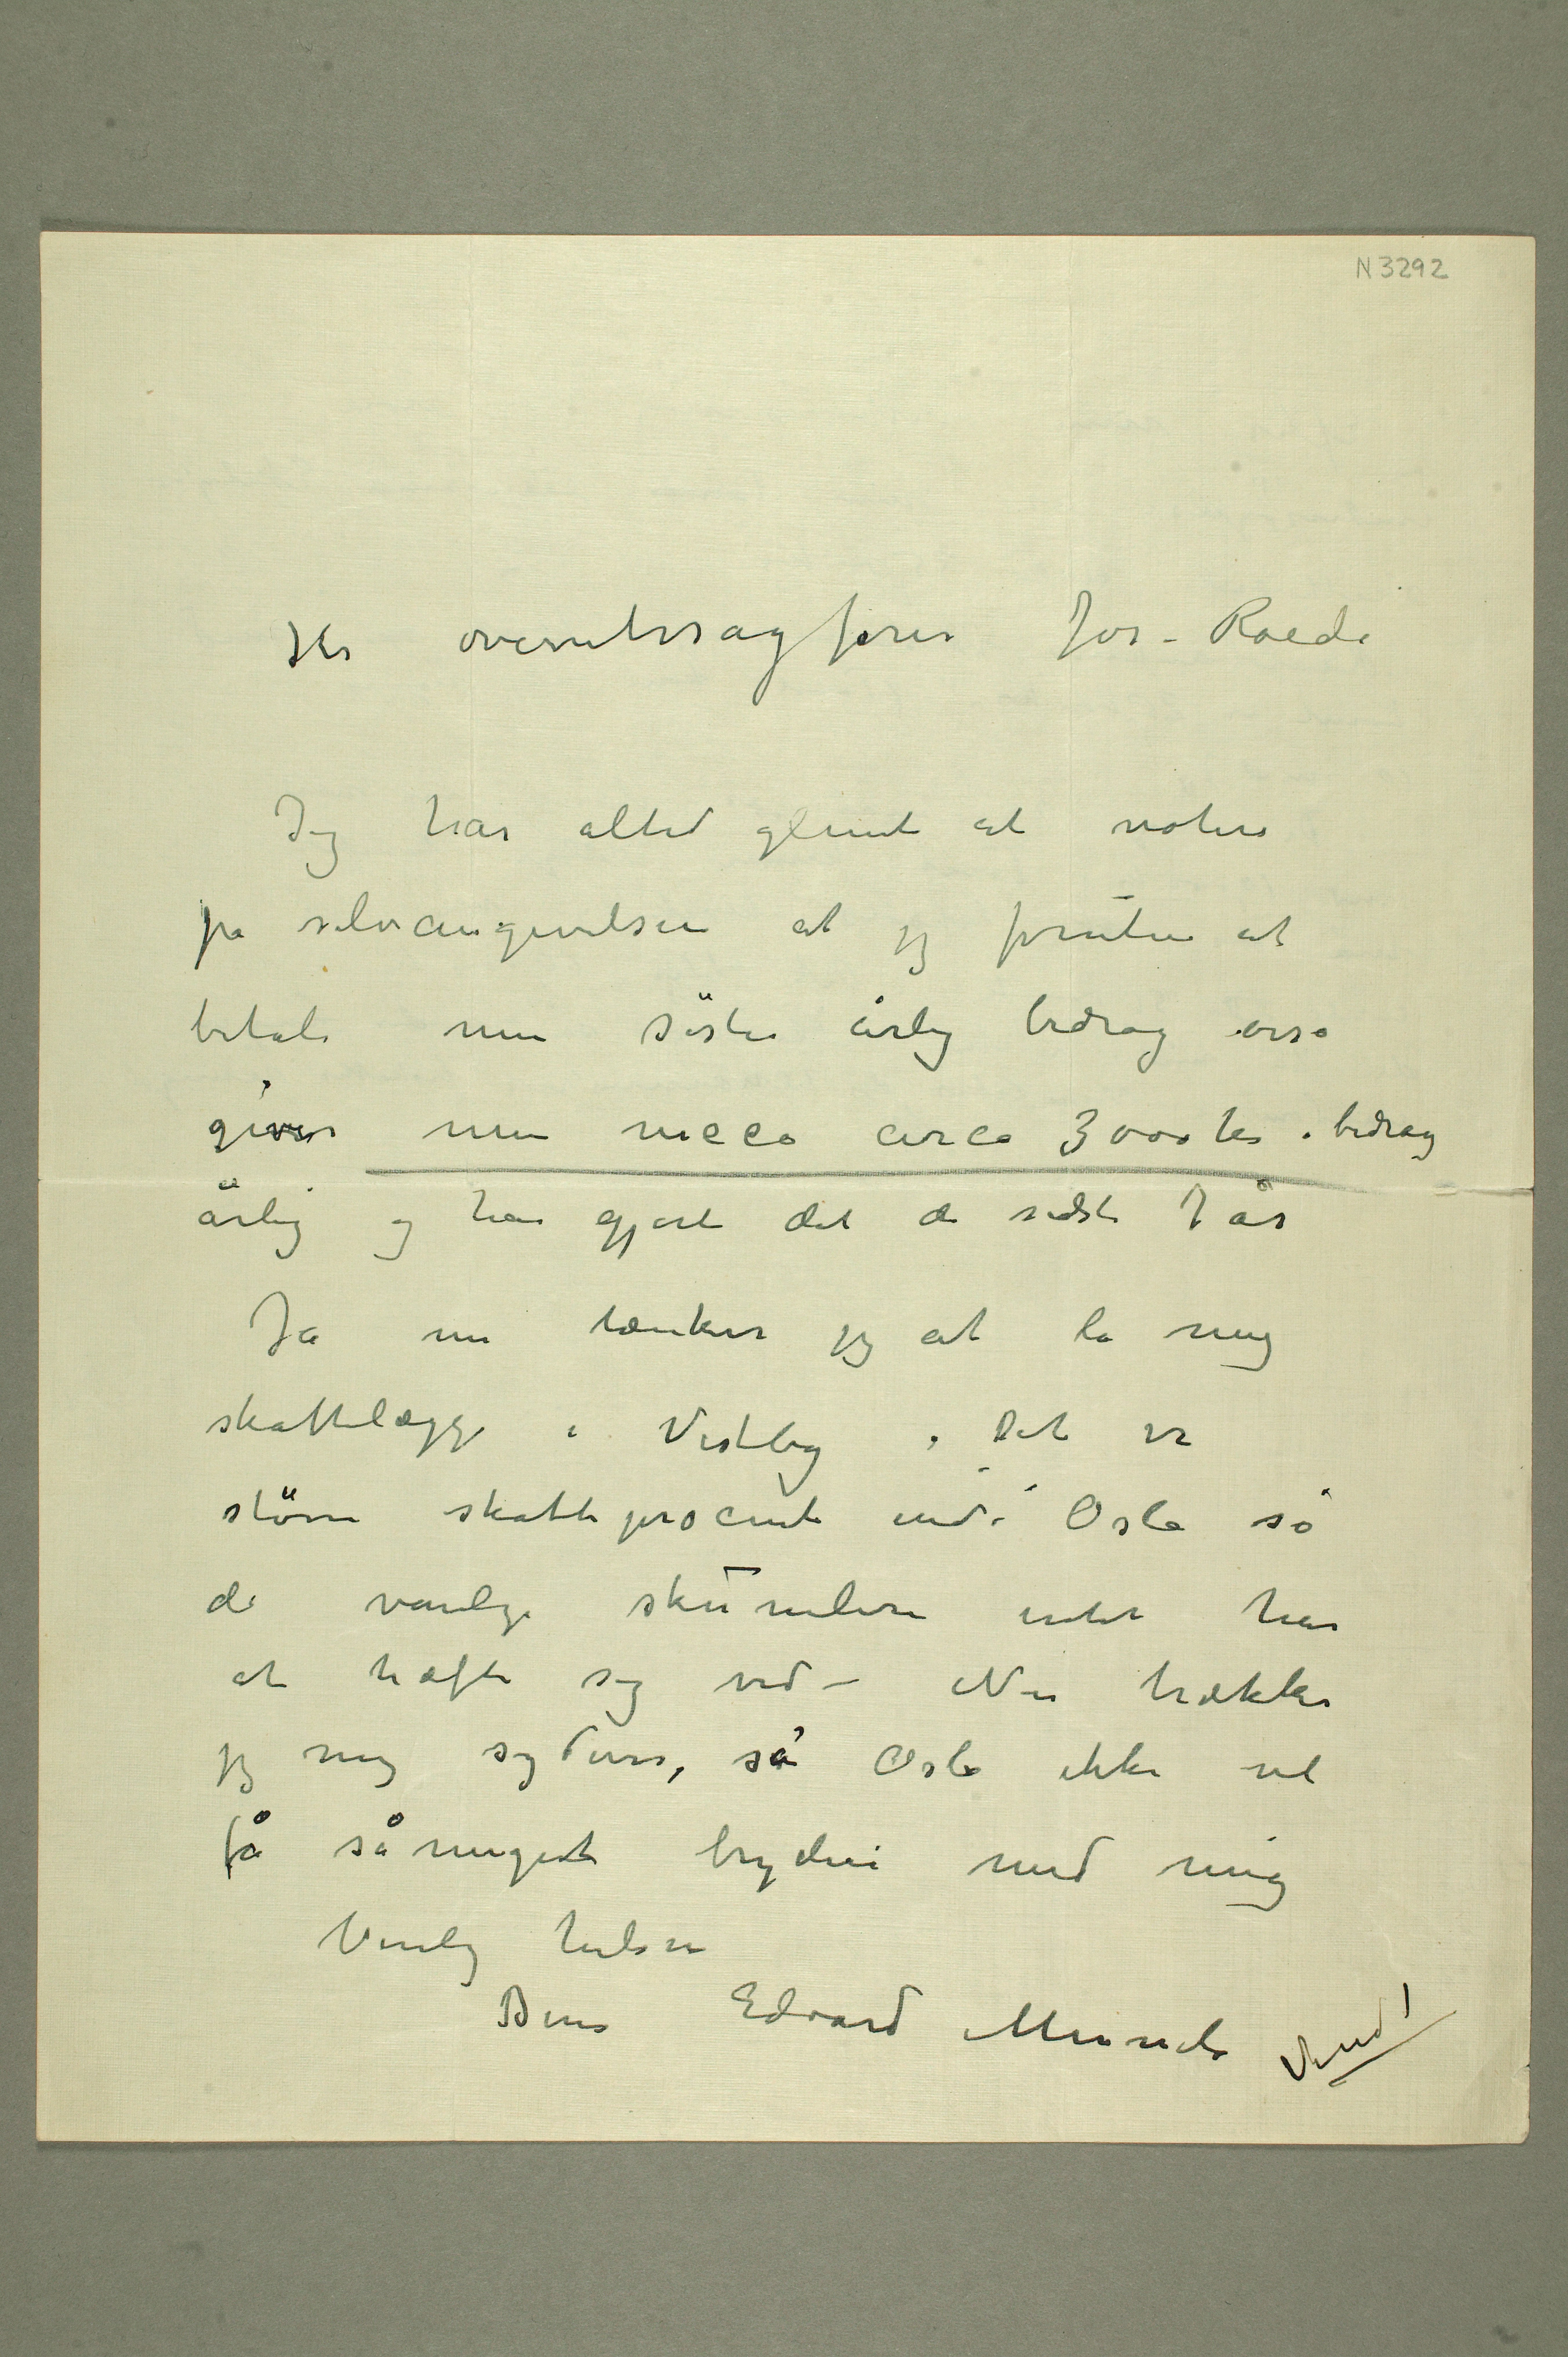 N 3292
Hr overretssagfører Joh. Roede
Jeg har altid glemt at notere
på selvangivelsen at jeg foruten at
betale min söster årlig bidrag også
giver min niece circa 3000 kr i bidrag
årlig og har gjort det de sidste 7 år
Ja nu tænker jeg at la mig
skattelægge i Vestby. Det er
större skatteprocent end i Oslo så
de vanlige skumlere intet har
at hæfte sig ved – Nu trækker
jeg mig sydover, så Oslo ikke vil
få så meget bryderi med mig
Venlig hilsen
Deres Edvard Munch Vend!